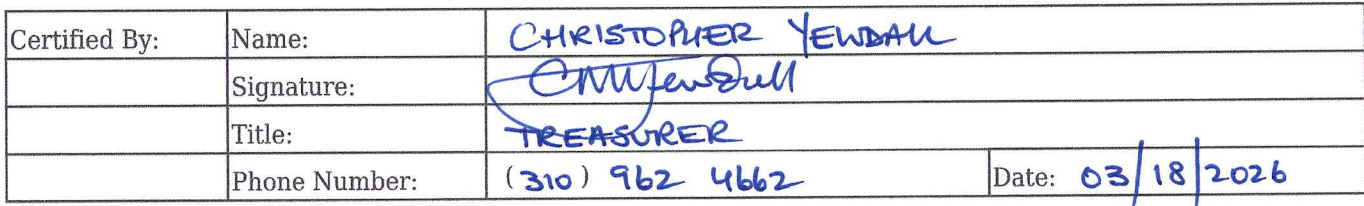 Certified By: Name: CHRISTOPHER YEWDALL
Signature: CMYewdall
Title: TREASURER
Phone Number: (310) 962 4662 Date: 03/18/2026